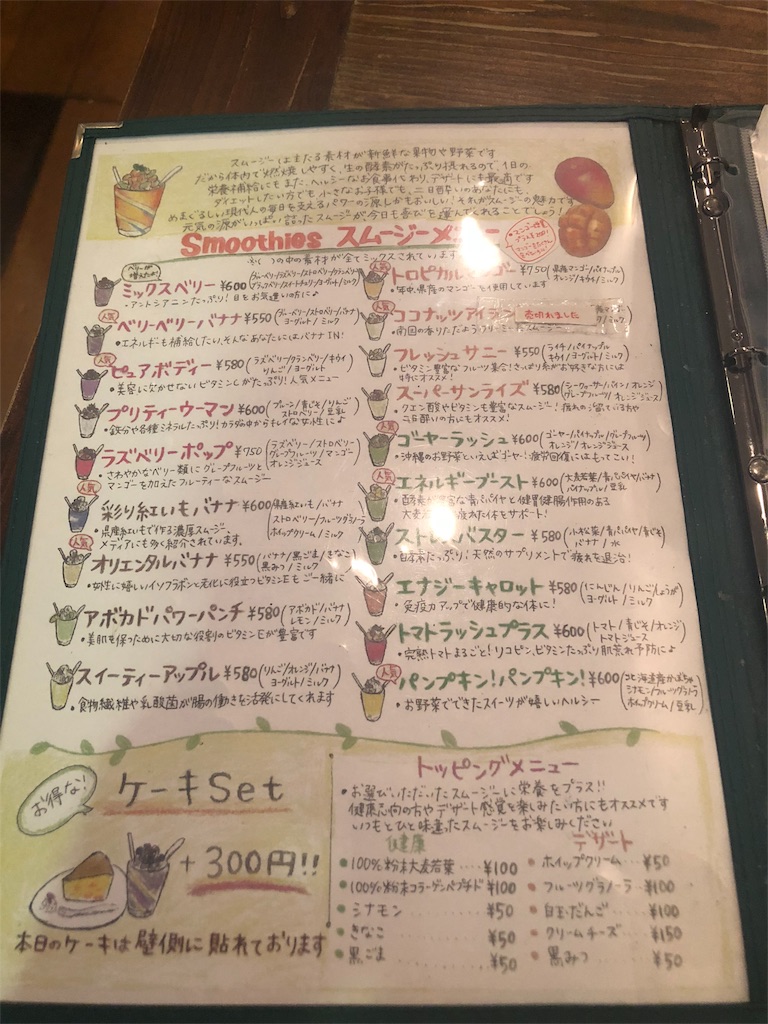 スムージーは主たる素材が新鮮な果物や野菜です
だから体内で燃焼しやすく、生の酵素がたっぷり採れるので、1日の
栄養補給にもまた、ヘルシーなお食事代わり、デザートにも最適です
ダイエットしたい方でも小さなお子様でも、二日酔いのあなたにも、
めまぐるしい現代人の毎日を支えるパワーの源しかもおいしい!それがスムージーの魅力です
元気の源がいっぱい詰ったスムージーが今日も喜びを運んでくれることでしょう!
Smoothies スムージーメニュー
つの中の素材が全てミックスされています
ベリーが増えたよ!
ミックスベリー ¥600 (ブルーベリー/ラズベリー/ストロベリー/クランベリー
ヨーグルト/ミルク)
・アントシアニンたっぷり!目をお気遣いの方に♪
ベリーベリーバナナ ¥550 (ブルーベリー/ストロベリー/バナナ
ヨーグルト/ミルク)
・エネルギーも補給したい、そんなあなたにはバナナIN!
人気
ピュアボディー ¥580 (ラズベリー/クランベリー/キウイ
りんご/ヨーグルト)
・美容に欠かせないビタミンCがたっぷり!人気メニュー
プリティーウーマン ¥600 (プルーン/青じそ/りんご
ストロベリー/豆乳)
・鉄分や各種ミネラルたっぷり!カラダの中からキレイな女性に♪
ラズベリーポップ ¥750 (ラズベリー/ストロベリー
グレープフルーツ/マンゴー
オレンジジュース)
・さわやかなベリー類にグレープフルーツと
マンゴーを加えたフルーティーなスムージー
人気
彩り紅いもバナナ ¥600 (県産紅いも/バナナ
ストロベリー/フルーツグラノーラ
ホイップクリーム/ミルク)
・県産紅いもで作る濃厚スムージー、
メディアにも多く紹介されています。
人気
オリエンタルバナナ ¥550 (バナナ/黒ごま/きなこ
黒みつ/ミルク)
・女性に嬉しいイソフラボンと老化に役立つビタミンEもご一緒に
アボカドパワーパンチ ¥580 (アボカド/バナナ
レモン/ミルク)
・美肌を保つために大切な役割のビタミンEが豊富です
スイーティーアップル ¥580 (りんご/オレンジ/バナナ
ヨーグルト/ミルク)
・食物繊維や乳酸菌が腸の働きを活発にしてくれます
人気
トロピカルマンゴー ¥750 (県産マンゴー/パイナップル
オレンジ/キウイ/ミルク)
・年中、県産のマンゴーを使用しています
ココナッツアイラン 売切れました
・南国の香りただようクリーミースムージー
フレッシュサニー ¥550 (ライチ/パイナップル
キウイ/ヨーグルト/ミルク)
・ビタミン豊富なフルーツ集合!さっぱり系がお好きな方には
特にオススメ!
スーパーサンライズ ¥580 (シークヮーサー/パイン/オレンジ
グレープフルーツ/オレンジジュース)
・クエン酸やビタミンも豊富なスムージー!疲れの溜っている方や
二日酔いの方にもオススメ!
ゴーヤーラッシュ ¥600 (ゴーヤー/パイナップル/グレープフルーツ
オレンジ/オレンジジュース)
・沖縄のお野菜といえばゴーヤー!疲労回復にはもってこい!
人気
エネルギーブースト ¥600 (大麦若葉/青パパイヤ/バナナ
パイナップル/豆乳)
・酵素が豊富な青パパイヤと健胃健腸作用のある
大麦若葉が疲れた体をサポート!
ストレスバスター ¥580 (小松菜/青パパイヤ/青じそ
バナナ/水)
・日本茶たっぷり!天然のサプリメントで疲れを退治!
エナジーキャロット ¥580 (にんじん/りんご/しょうが
ヨーグルト/ミルク)
・免疫力アップで健康的な体に!
トマトラッシュプラス ¥600 (トマト/青じそ/オレンジ
トマトジュース)
・完熟トマトまるごと!リコピン、ビタミンたっぷり肌荒れ予防に♪
人気
パンプキン!パンプキン! ¥600 (北海道産かぼちゃ
シナモン/フルーツグラノーラ
ホイップクリーム/豆乳)
・お野菜でできたスイーツが嬉しいヘルシー
お得な!
ケーキSet
+300円!!
本日のケーキは壁側に貼れております
トッピングメニュー
・お選びいただいたスムージーに栄養をプラス!!
健康志向の方やデザート感覚を楽しみたい方にもオススメです
いつもとひと味違ったスムージーをお楽しみください
健康
・100%粉末大麦若葉・・・・¥100
・100%粉末コラーゲンペプチド・¥100
・シナモン・・・・¥50
・きなこ・・・・¥50
・黒ごま・・・・¥50
デザート
・ホイップクリーム・・・・¥50
・フルーツグラノーラ・・・¥100
・白玉だんご・・・・¥100
・クリームチーズ・・・・¥150
・黒みつ・・・・¥50